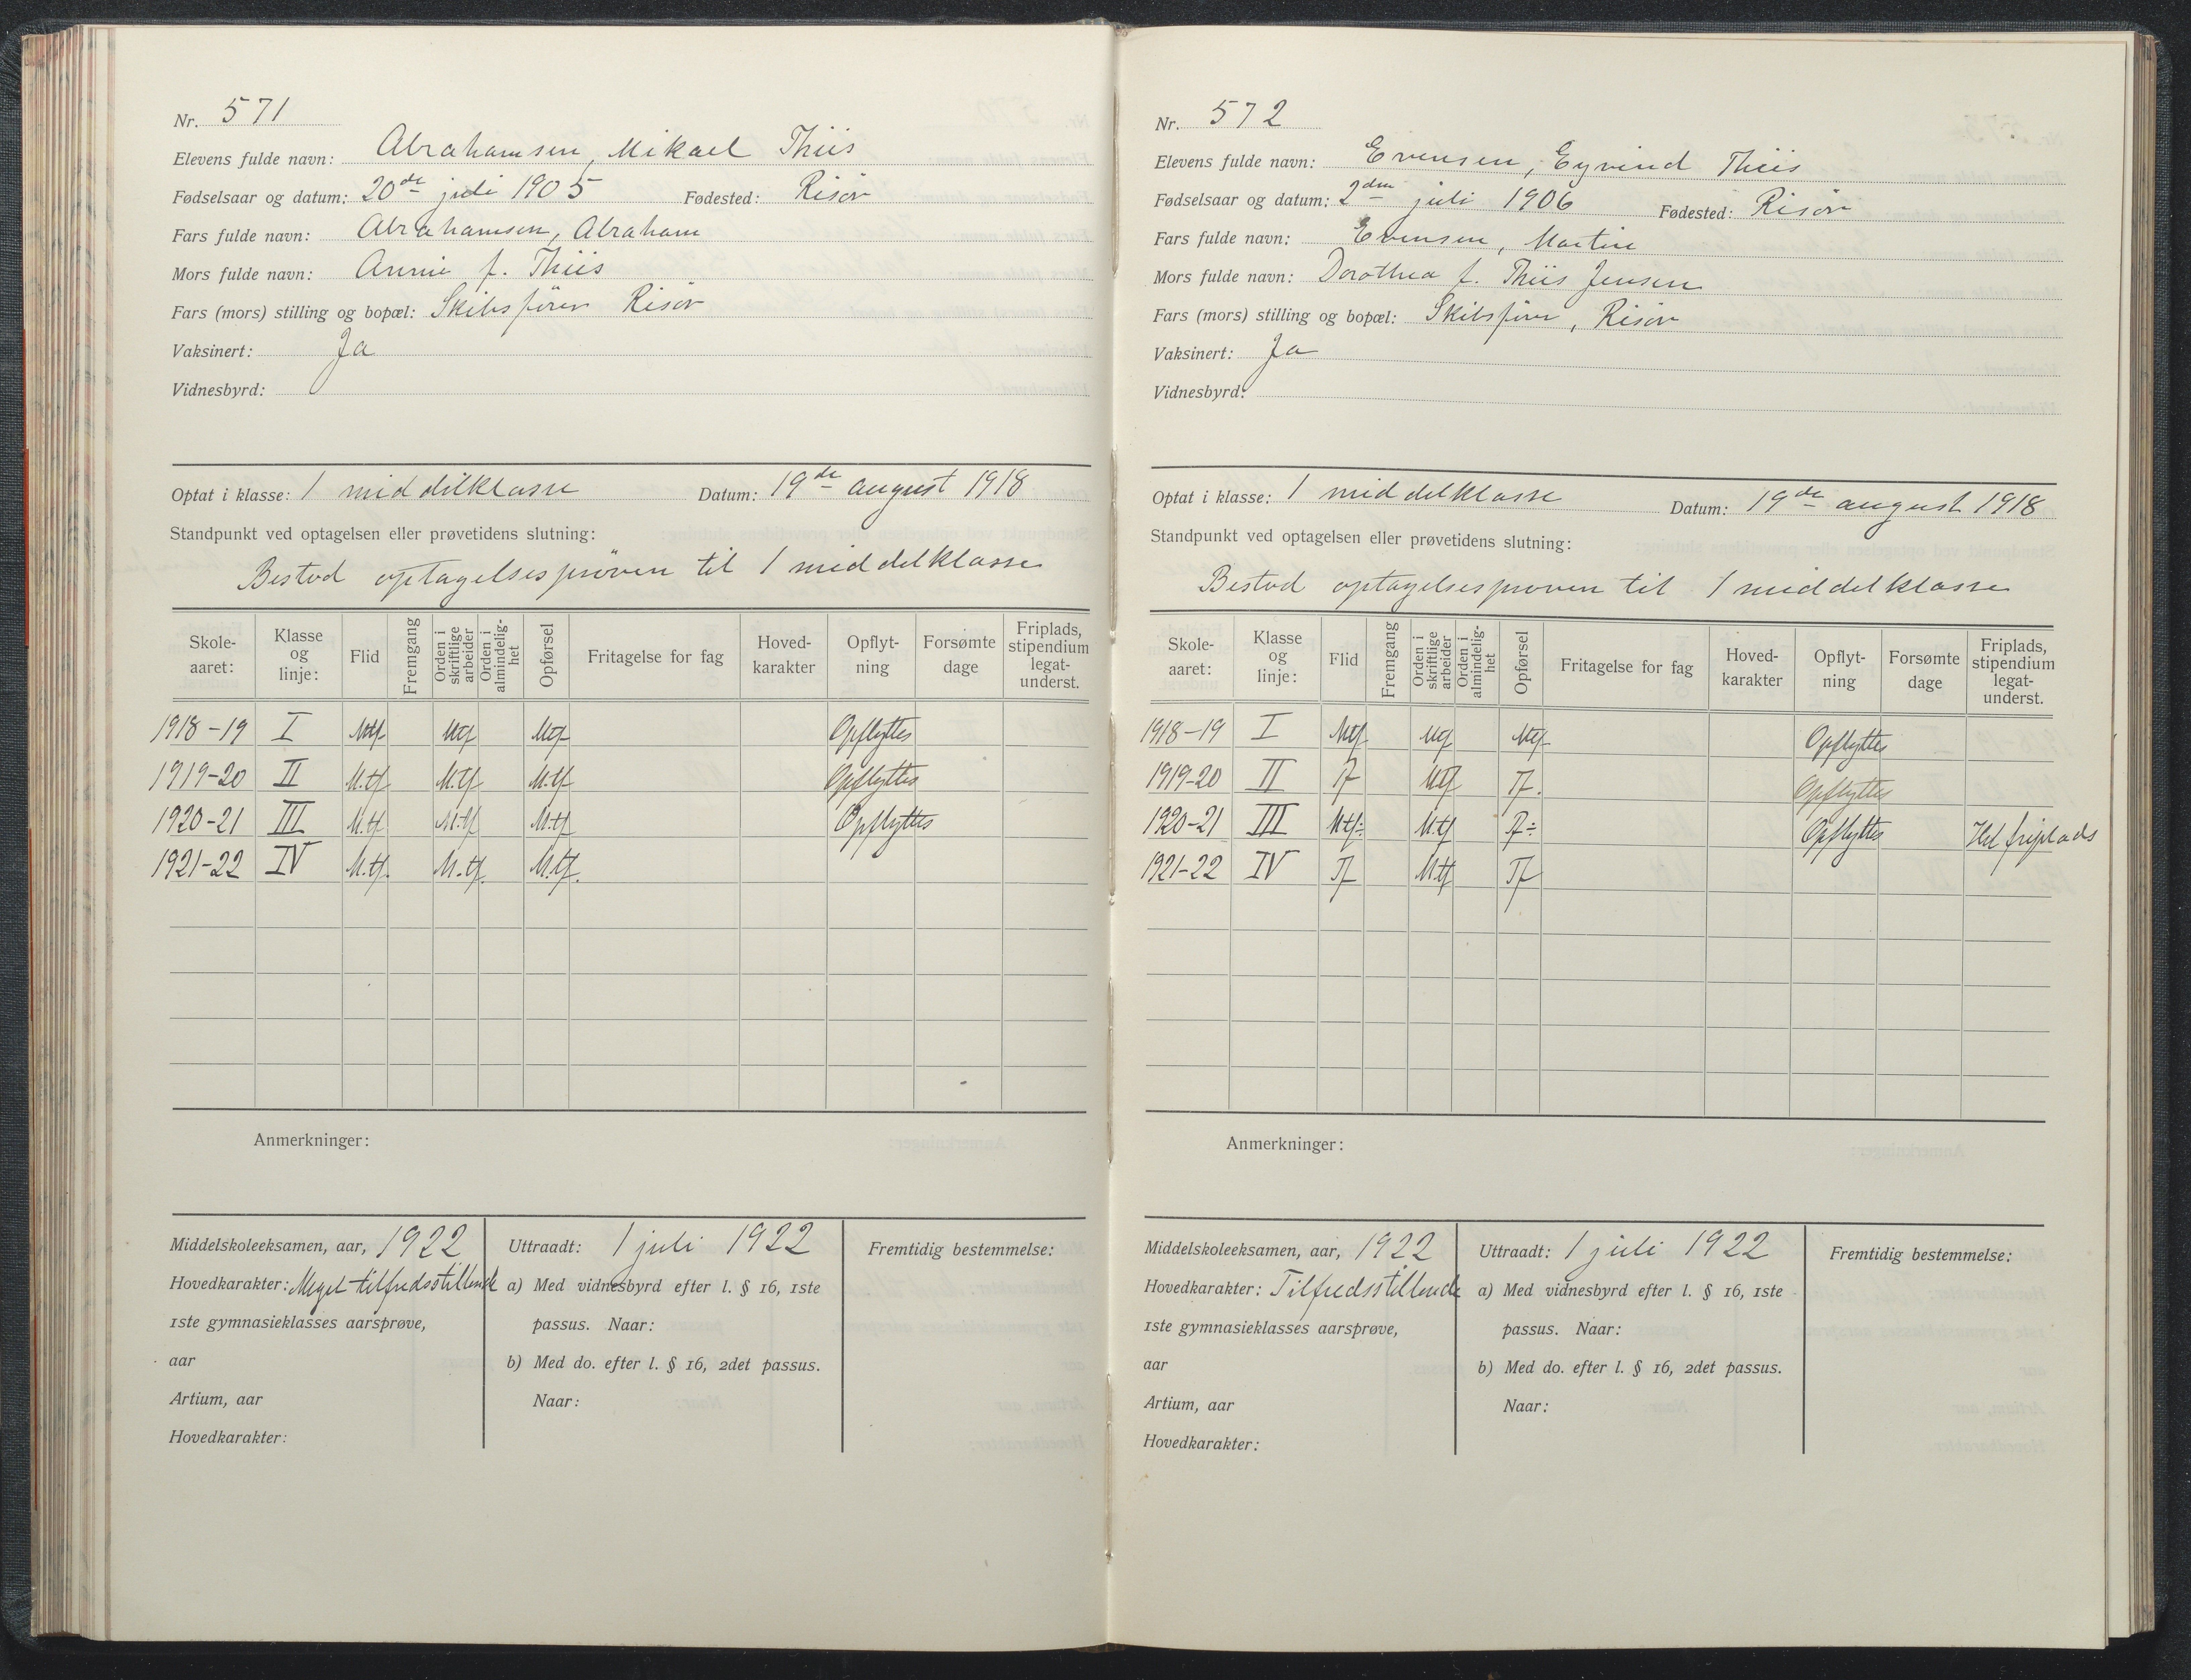 Nr. 571
Elevens fulde navn: Abrahamsen, Mikael Thiis
Fødselsaar og datum: 20de juli 1905 Fødested: Risör
Fars fulde navn: Abrahamsen, Abraham
Mors fulde navn: Annie f. Thiis
Fars (mors) stilling og bopæl: Skibsförer Risör
Vaksinert: Ja
Vidnesbyrd:
Optat i klasse: 1 middelklasse Datum: 19de august 1918
Standpunkt ved optagelsen eller prøvetidens slutning:
Bestod optagelsespröven til 1 middelklasse
Skole-aaret: Klasse og linje: Flid Fremgang Orden i skriftlige arbeider Orden i almindelig-het Opførsel Fritagelse for fag Hoved-karakter Opflyt-ning Forsømte dage Friplads, stipendium legat-underst.
1918-19 I Mtf Mtf Mtf Opflyttes
1919-20 II M.tf M.tf M.tf Opflyttes
1920-21 III M.tf M.tf M.tf Opflyttes
1921-22 IV M.tf. M.tf. M.tf.
Anmerkninger:
Middelskoleeksamen, aar, 1922
Hovedkarakter: Meget tilfredsstillende
1ste gymnasieklasses aarsprøve,
aar
Artium, aar
Hovedkarakter:
Uttraadt: 1 juli 1922
a) Med vidnesbyrd efter l. § 16, 1ste
passus. Naar:
b) Med do. efter l. § 16, 2det passus.
Naar:
Fremtidig bestemmelse:
Nr. 572
Elevens fulde navn: Evensen, Eyvind Thiis
Fødselsaar og datum: 2den juli 1906 Fødested: Risör
Fars fulde navn: Evensen, Martin
Mors fulde navn: Dorothea f. Thiis Jensen
Fars (mors) stilling og bopæl: Skibsförer, Risör
Vaksinert: Ja
Vidnesbyrd:
Optat i klasse: 1 middelklasse Datum: 19de august 1918
Standpunkt ved optagelsen eller prøvetidens slutning:
Bestod optagelsesprøven til 1 middelklasse
Skole-aaret: Klasse og linje: Flid Fremgang Orden i skriftlige arbeider Orden i almindelig-het Opførsel Fritagelse for fag Hoved-karakter Opflyt-ning Forsømte dage Friplads, stipendium legat-underst.
1918-19 I Mtf Mtf Mtf Opflyttes
1919-20 II Tf Mtf Tf. Opflyttes
1920-21 III Mtf÷ M.tf Tf÷ Opflyttes Hel friplads
1921-22 IV Tf M.tf Tf
Anmerkninger:
Middelskoleeksamen, aar, 1922
Hovedkarakter: Tilfredsstillende
1ste gymnasieklasses aarsprøve,
aar
Artium, aar
Hovedkarakter:
Uttraadt: 1 juli 1922
a) Med vidnesbyrd efter l. § 16, 1ste
passus. Naar:
b) Med do. efter l. § 16, 2det passus.
Naar:
Fremtidig bestemmelse: